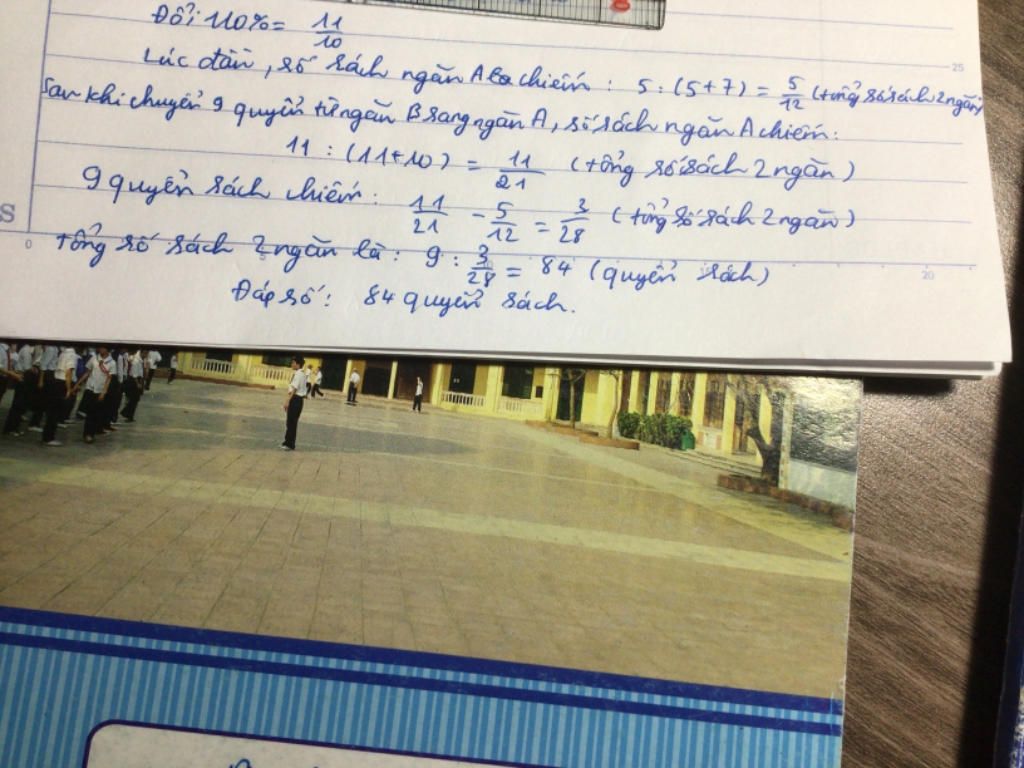 Đổi 110% = 11/10
Lúc đầu, số sách ngăn A chiếm : 5 : (5+7) = 5/12 (tổng số sách 2 ngăn)
Sau khi chuyển 9 quyển từ ngăn B sang ngăn A, số sách ngăn A chiếm:
11 : (11+10) = 11/21 (tổng số sách 2 ngăn)
9 quyển sách chiếm: 11/21 - 5/12 = 3/28 (tổng số sách 2 ngăn)
tổng số sách 2 ngăn là : 9 : 3/28 = 84 (quyển sách)
Đáp số : 84 quyển sách.
S
0
5
20
25